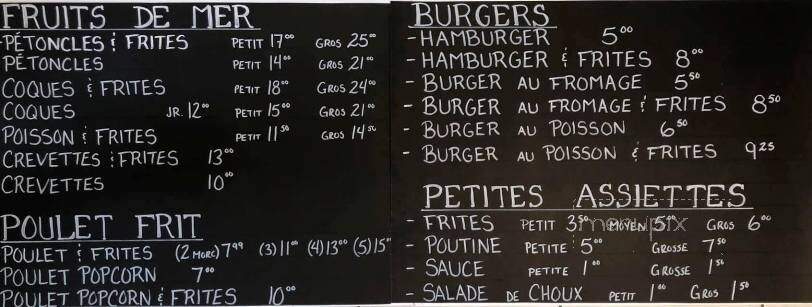 FRUITS DE MER
-PÉTONCLES & FRITES PETIT 17⁰⁰ GROS 25⁰⁰
PÉTONCLES PETIT 14⁰⁰ GROS 21⁰⁰
COQUES & FRITES PETIT 18⁰⁰ GROS 24⁰⁰
COQUES JR. 12⁰⁰ PETIT 15⁰⁰ GROS 21⁰⁰
POISSON & FRITES PETIT 11⁵⁰ GROS 14⁵⁰
CREVETTES & FRITES 13⁰⁰
CREVETTES 10⁰⁰
POULET FRIT
POULET & FRITES (2 MORC) 7⁹⁹ (3) 11⁰⁰ (4) 13⁰⁰ (5) 15⁰⁰
POULET POPCORN 7⁰⁰
POULET POPCORN & FRITES 10⁰⁰
BURGERS
- HAMBURGER 5⁰⁰
- HAMBURGER & FRITES 8⁰⁰
- BURGER AU FROMAGE 5⁵⁰
- BURGER AU FROMAGE & FRITES 8⁵⁰
- BURGER AU POISSON 6⁵⁰
- BURGER AU POISSON & FRITES 9²⁵
PETITES ASSIETTES
- FRITES PETIT 3⁵⁰ MOYEN 5⁰⁰ GROS 6⁰⁰
- POUTINE PETITE 5⁰⁰ GROSSE 7⁵⁰
- SAUCE PETITE 1⁰⁰ GROSSE 1⁵⁰
- SALADE DE CHOUX PETIT 1⁰⁰ GROS 1⁵⁰
menupix